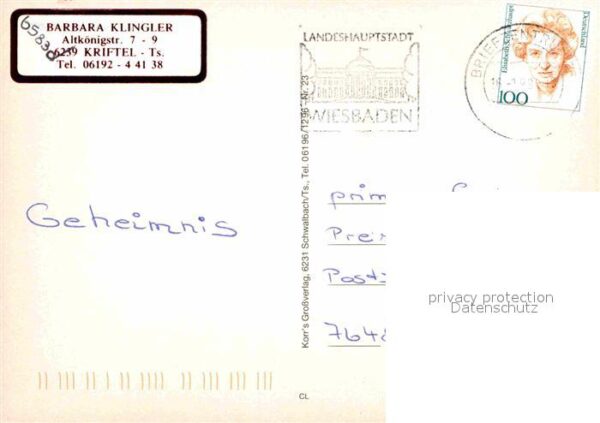 65830
BARBARA KLINGLER
Altkönigstr. 7 - 9
6239 KRIFTEL - Ts.
Tel. 06192 - 4 41 38
LANDESHAUPTSTADT
WIESBADEN
Deutschland
100
Geheimnis
Korr's Großverlag, 6231 Schwalbach/Ts., Tel. 06196/1296 · Nr. 23
prim
Prei
Post
7648
privacy protection
Datenschutz
CL